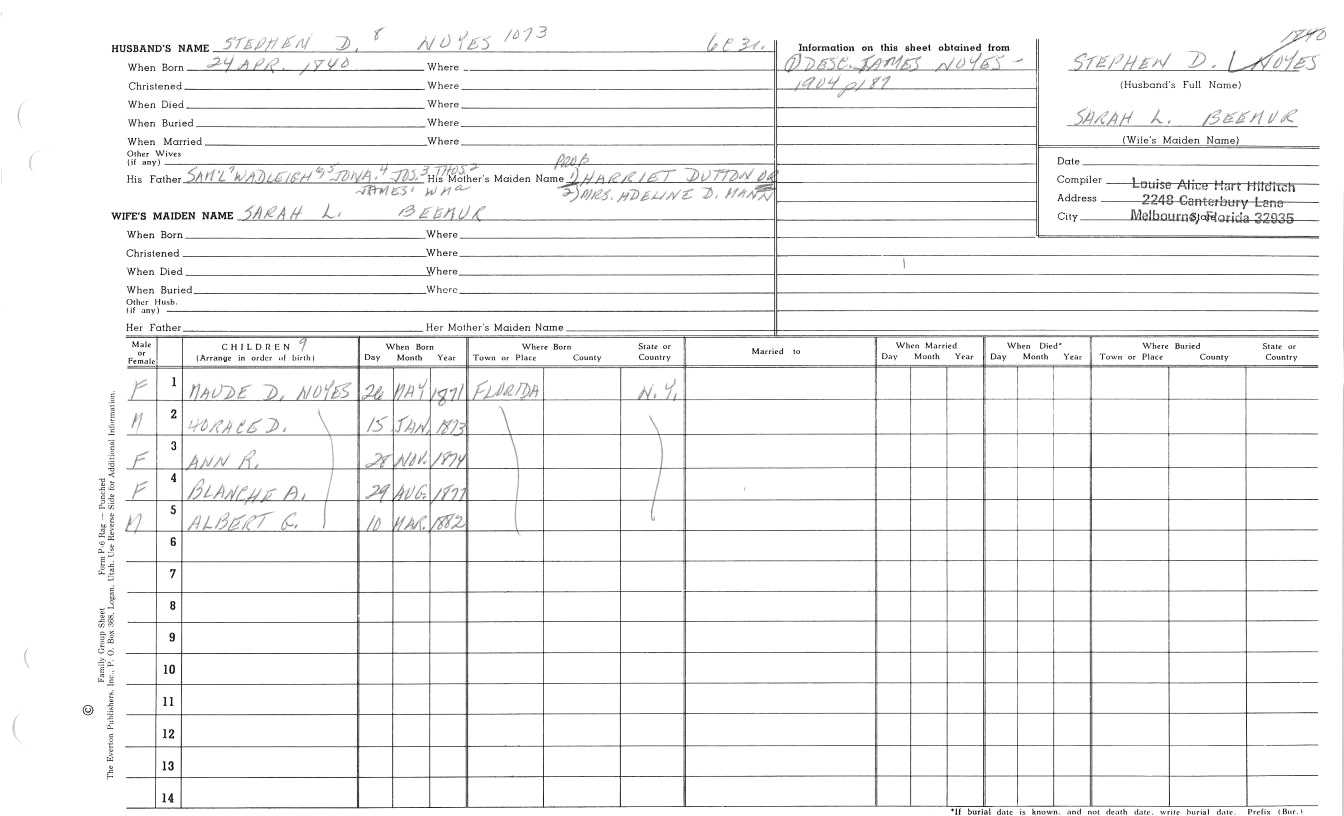 HUSBAND'S NAME STEPHEN D. 8 NOYES 1073
When Born 24 APR. 1840 Where
Christened Where
When Died Where
When Buried Where
When Married Where
Other Wives
(if any)
PROB
His Father SAM'L 7 WADLEIGH JONA. 4 JOS. 3 THOS 2 His Mother's Maiden Name 1) HARRIET DUTTON OR
JAMES 1 WM a 2) MRS. ADELINE D. MANN
WIFE'S MAIDEN NAME SARAH L. BEEMUR
When Born Where
Christened Where
When Died Where
When Buried Where
Other Husb.
(if any)
Her Father Her Mother's Maiden Name
Information on this sheet obtained from
(1) DESC. JAMES NOYES -
1904 p187
1840
STEPHEN D. NOYES
(Husband's Full Name)
SARAH L. BEEMUR
(Wife's Maiden Name)
Date
Compiler Louise Alice Hart Hilditch
Address 2248 Canterbury Lane
City Melbourne, Florida 32935
Male or Female
CHILDREN 9
(Arrange in order of birth)
When Born
Day Month Year
Where Born
Town or Place County
State or Country
Married to
When Married
Day Month Year
When Died*
Day Month Year
Where Buried
Town or Place County
State or Country
F 1 MAUDE D. NOYES 26 MAY 1871 FLORIDA N.Y.
M 2 HORACE D. 15 JAN. 1873
F 3 ANN R. 28 NOV. 1874
F 4 BLANCHE A. 29 AUG. 1877
M 5 ALBERT G. 10 MAR. 1882
6
7
8
9
10
11
12
13
14
*If burial date is known, and not death date, write burial date. Prefix (Bur.)
© Family Group Sheet Form P-6 Rag — Punched
The Everton Publishers, Inc., P. O. Box 368, Logan, Utah. Use Reverse Side for Additional Information.